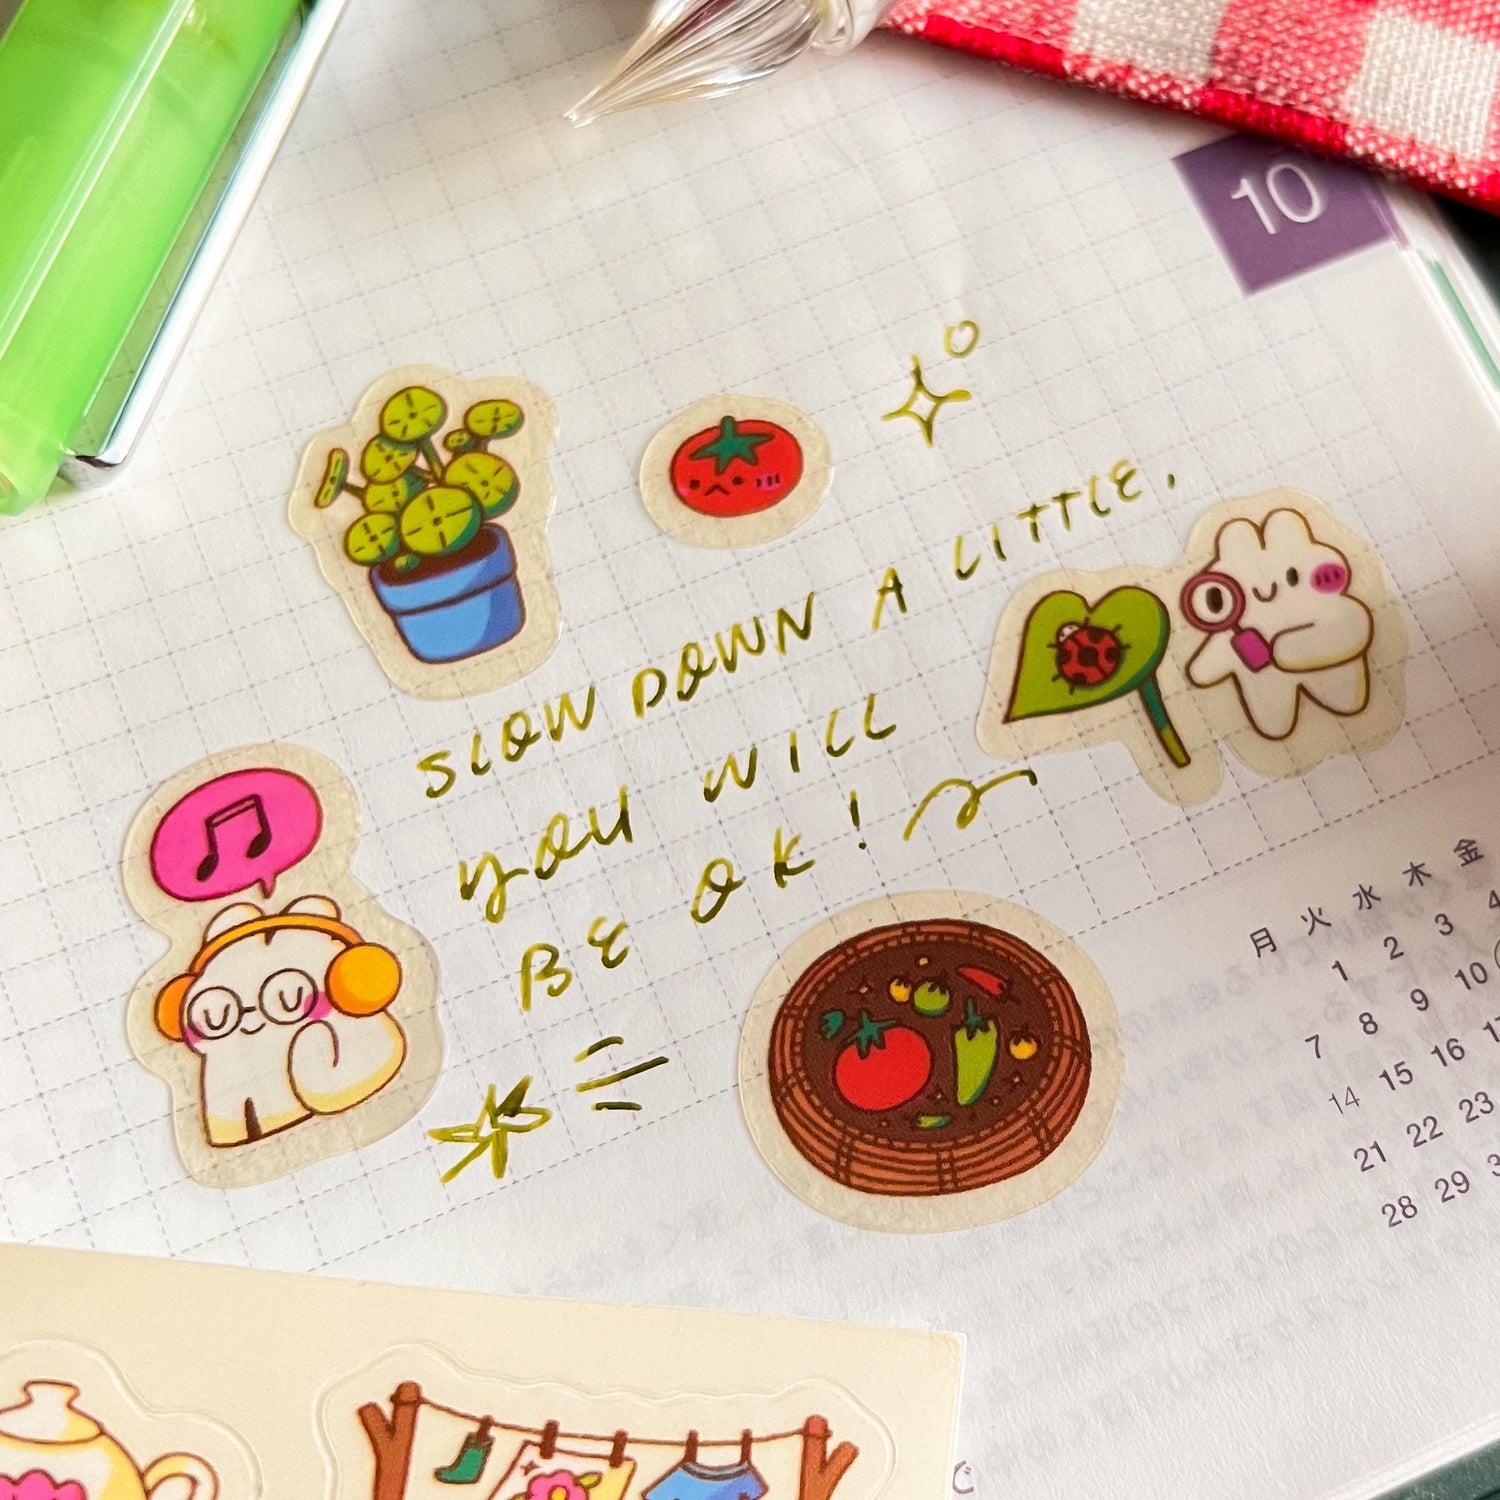 10
SLOW DOWN A LITTLE,
YOU WILL
BE OK!
月 火 水 木 金
1 2 3 4
7 8 9 10
14 15 16
21 22 23
28 29